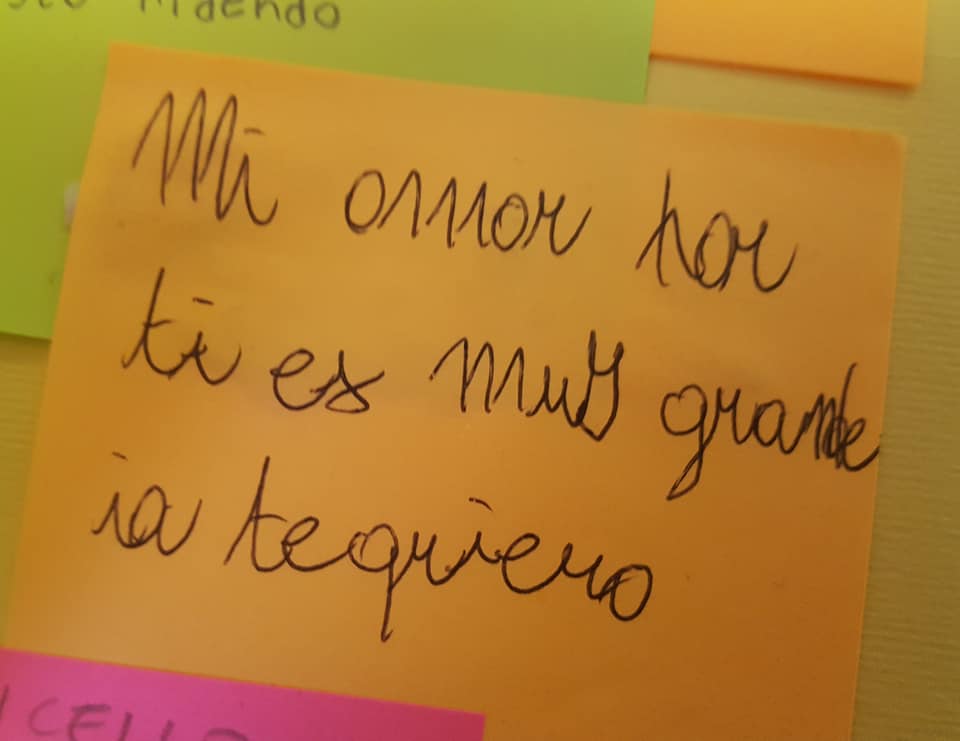 Mi amor por
ti es muy grande
ia tequiero